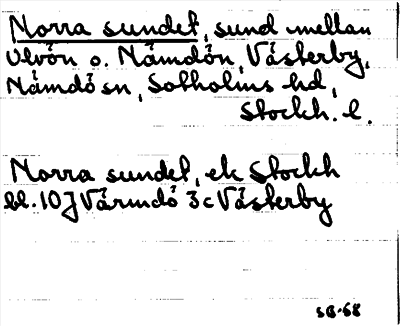 Norra sundet, sund mellan
Ulvön o. Nämdön, Västerby,
Nämdö sn, Sotholms hd,
Stockh. l.
Norra sundet, ek Stockh
bl. 10J Värmdö 3c Västerby
SB-68